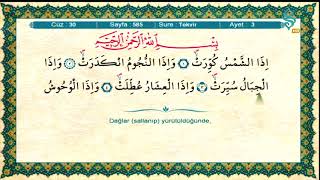 Cüz : 30 Sayfa : 585 Sure : Tekvir Ayet : 3
بِسْمِ اللّٰهِ الرَّحْمٰنِ الرَّحِيمِ
اِذَا الشَّمْسُ كُوِّرَتْۙ ﴿١﴾ وَاِذَا النُّجُومُ انْكَدَرَتْۙ ﴿٢﴾ وَاِذَا
الْجِبَالُ سُيِّرَتْۙ ﴿٣﴾ وَاِذَا الْعِشَارُ عُطِّلَتْۙ ﴿٤﴾ وَاِذَا الْوُحُوشُ
Dağlar (sallanıp) yürütüldüğünde,